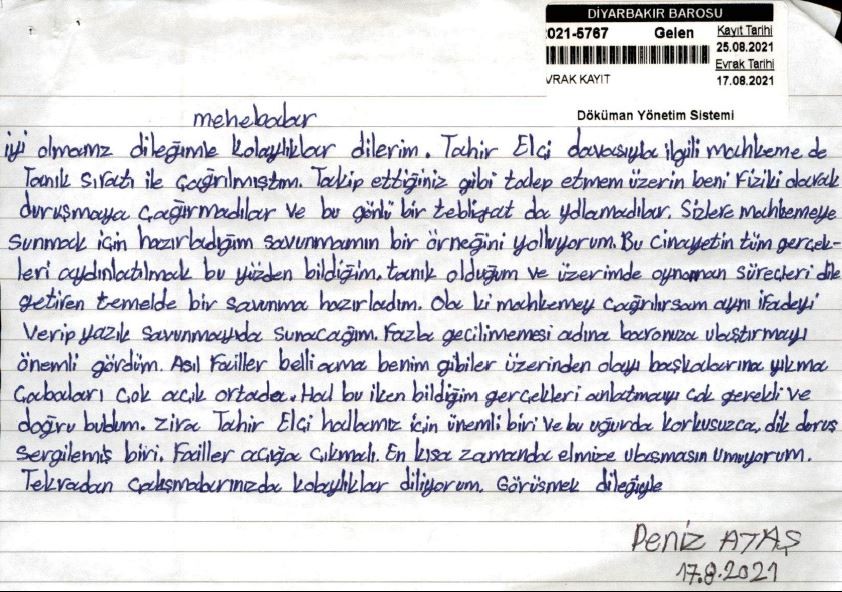 DİYARBAKIR BAROSU
021-5767 Gelen Kayıt Tarihi
25.08.2021
Evrak Tarihi
VRAK KAYIT 17.08.2021
Döküman Yönetim Sistemi
mehebalar
iyi olmamz dileğimle kolaylıklar dilerim. Tahir Elçi davasıyla ilgili mahkeme de
Tanık Sıratı ile çağrılmıştım. Takip ettiğiniz gibi talep etmem üzerin beni Fiziki olarak
duruşmaya çağırmadılar ve bu gönlü bir tebligat da yollamadılar. Sizlere mahkemeye
sunmak için hazırladığım savunmamın bir örneğini yolluyorum. Bu cinayetin tüm gerçek-
leri aydınlatılmak bu yüzden bildiğim, tanık olduğum ve üzerimde oynanan süreçleri dile
getiren temelde bir savunma hazırladım. Ola ki mahkemey çağrılırsam aynı ifadeyi
Verip yazılı savunmayıda sunacağım. Fazla gecilimemesi adına baronuza ulaştırmayı
önemli gördüm. Asıl Failler belli ama benim gibiler üzerinden olayı başkalarına yıkma
Çabaları çok açık ortada. Hal bu iken bildiğim gerçekleri anlatmayı çok gerekli ve
doğru buldum. zira Tahir Elçi halkamız için önemli biri ve bu uğurda korkusuzca, dik duruş
sergilemiş biri. Failler açığa çıkmalı. En kısa zamanda elmize ulaşmasın umuyorum.
Tekradan çalışmalarınızda kolaylıklar diliyorum. Görüşmek dileğiyle
Deniz ATAŞ
17.8.2021